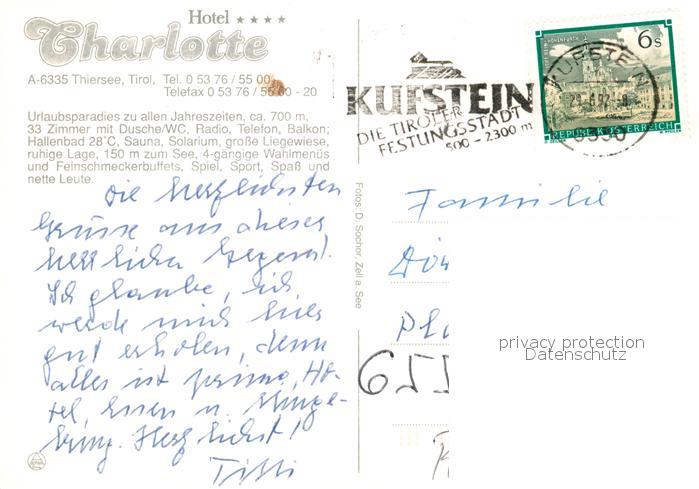 Hotel ★★★★
Charlotte
A-6335 Thiersee, Tirol, Tel. 0 53 76 / 55 00,
Telefax 0 53 76 / 55 00 - 20
Urlaubsparadies zu allen Jahreszeiten, ca. 700 m,
33 Zimmer mit Dusche/WC, Radio, Telefon, Balkon;
Hallenbad 28°C, Sauna, Solarium, große Liegewiese,
ruhige Lage, 150 m zum See, 4-gängige Wahlmenüs
und Feinschmeckerbuffets, Spiel, Sport, Spaß und
nette Leute.
Die herzlichsten
Grüsse aus dieser
herrlichen Gegend.
Ich glaube, ich
werde mich hier
gut erholen, denn
alles ist prima, Ho-
tel, Essen u. Umge-
bung. Herzlichst!
Fotos: D. Sochor, Zell a. See
KUFSTEIN
DIE TIROLER
FESTUNGSSTADT
500 - 2300 m
HOHENFURTH
6 S
REPUBLIK ÖSTERREICH
KUFSTEIN
6330
Familie
655
privacy protection
Datenschutz